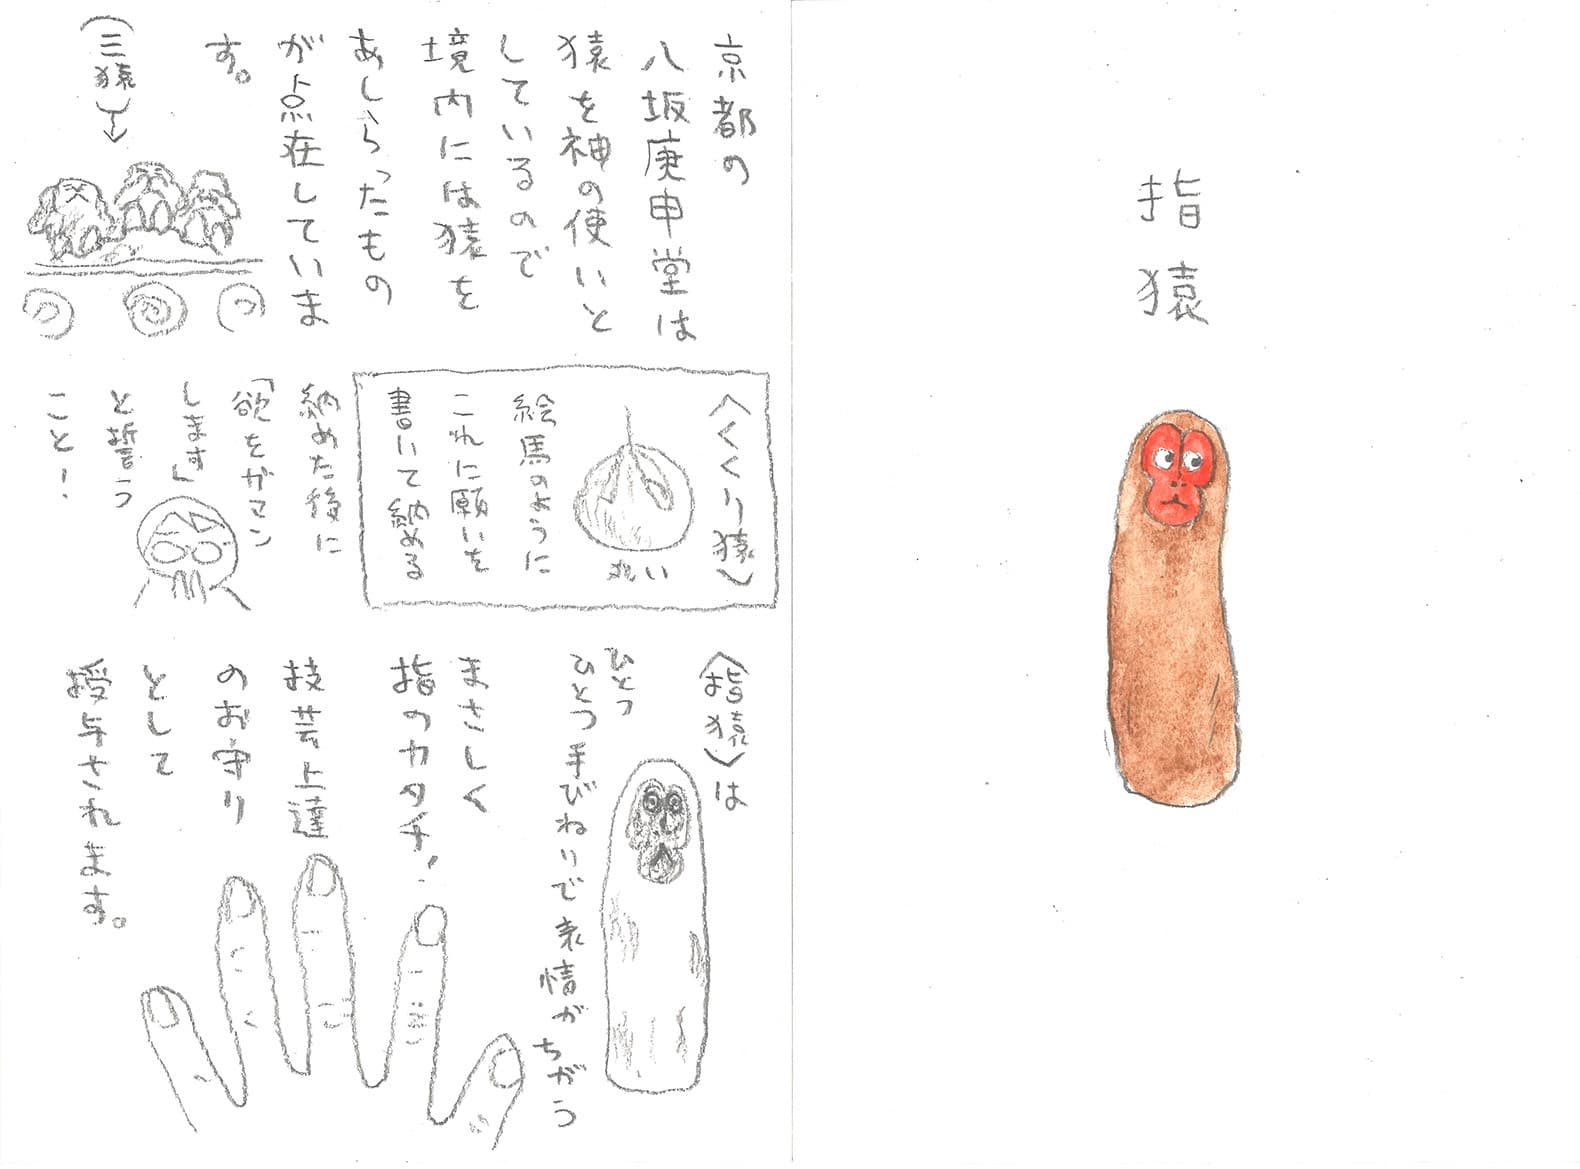 指猿
京都の
八坂庚申堂は
猿を神の使いと
しているので
境内には猿を
あしらったもの
が点在していま
す。
(三猿)→
〈くくり猿〉
丸い
絵馬のように
これに願いを
書いて納める
納めた後に
「欲をガマン
します」
と誓う
こと!
〈指猿〉は
ひとつ
ひとつ手びねりで表情がちがう
まさしく
指のカタチ!
技芸上達
のお守り
として
授与されます。